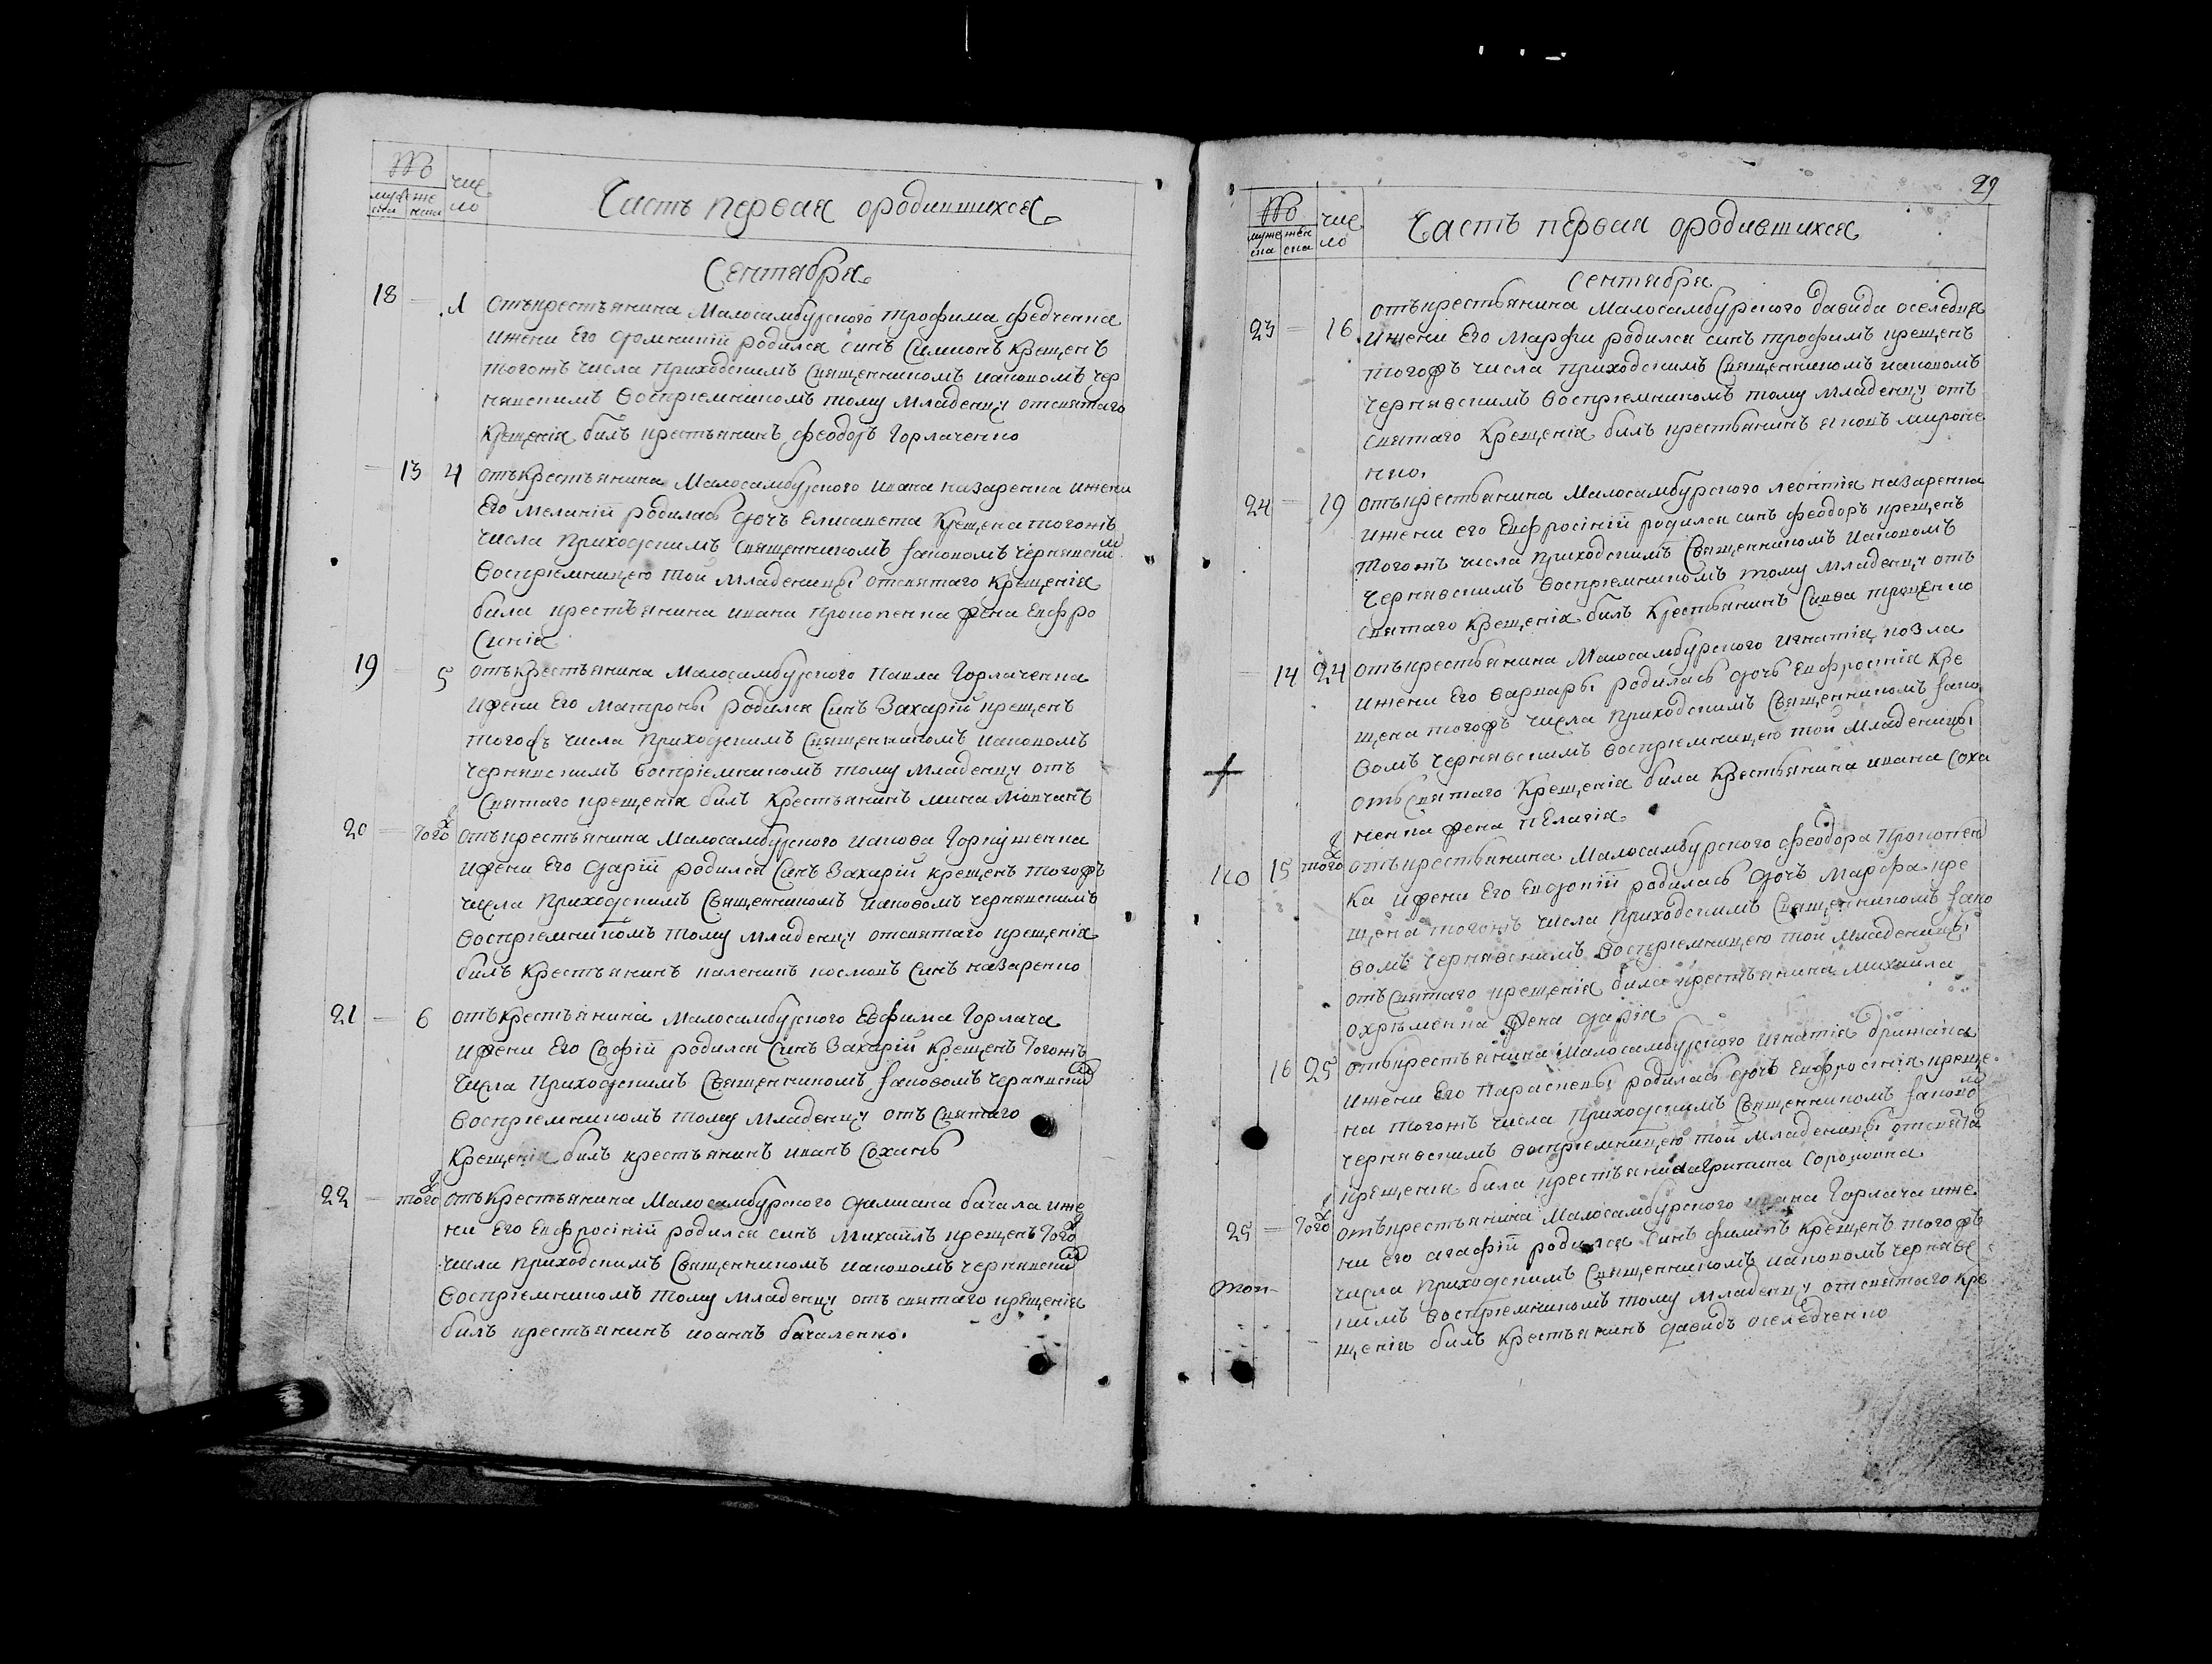 № чис
муже жен ло Часть первая ородившихся
ска ска
Сентября
18 — 1 отъкрестьянина Малосамбурского трофима федченка
ижени Его домникіи родился синъ Симионъ крещенъ
тогожъ числа приходскимъ Священникомъ иаковомъ чер
нявскимъ воспріемникомъ тому Младенцу отсвятаго
Крещенія билъ крестьянинъ феодоръ Горлаченко
— 13 4 отъкрестьянина Малосамбурского ивана назаренка ижени
Его Меланіи родилась дочъ Елисавета крещена тогожъ
числа приходскимъ священникомъ іаковомъ чернявским
воспріемницею той младеници отсвятаго крещенія
била крестьянина ивана прокопенка жена Евфро
синія
19 — 5 отъкрестьянина Малосамбурского Павла Горлаченка
ижени Его Матрони родился Синъ Захарій крещенъ
тогожъ числа приходскимъ священникомъ иаковомъ
чернявскимъ воспріемникомъ тому Младенцу отъ
Святаго крещенія билъ крестьянинъ мина
20 — тогож отъкрестьянина Малосамбурского иакова Горкушенка
ижени Его дарій родился Синъ Захарій крещенъ тогожъ
числа приходскимъ Священникомъ иаковомъ чернявскимъ
воспріемникомъ тому Младенцу отсвятаго крещенія
билъ крестьянинъ каленикъ космовъ Синъ назаренко
21 — 6 отъкрестьянина Малосамбурского Евфима Горлача
ижени Его Софій родился Синъ Захарій крещенъ тогожъ
числа приходскимъ Священникомъ іаковомъ чернявским
воспріемникомъ тому Младенцу отъ Святаго
Крещенія билъ крестьянинъ иванъ Сохань
22 — тогож отъкрестьянина Малосамбурского дамиана бачала иже
ни Его Евфросініи родился синъ Михаилъ крещенъ тогож
числа приходскимъ Священникомъ иаковомъ чернявским
воспріемникомъ тому Младенцу отъ святаго крещенія
билъ крестьянинъ иоаннъ бачаленко.
29
№ чис
муже жен ло Часть первая ородившихся
ска ска
Сентября
отъкрестьянина Малосамбурского давида оселедця
23 — 16 ижени Его Марфи родился синъ трофимъ крещенъ
тогожъ числа приходскимъ Священникомъ иаковомъ
чернявскимъ воспріемникомъ тому младенцу отъ
святаго Крещенія билъ крестьянинъ яковъ мироне
нко.
24 — 19 отъкрестьянина Малосамбурского леонтія назаренка
ижени его Евфросініи родился синъ феодоръ крещенъ
тогожъ числа приходскимъ Священникомъ Иаковомъ
чернявскимъ воспріемникомъ тому младенцу отъ
святаго крещенія билъ Крестьянинъ Савва троценко
— 14 24 отъкрестьянина Малосамбурского игнатія козла
ижени Его варвари родилась дочь Евфросінія Кре
щена тогожъ числа приходскимъ Священникомъ іако
вомъ чернявскимъ воспріемницею той Младеници
отъ Святаго Крещенія била Крестьянина ивана Соха
ненка жена пелагія.
15 тогож отъкрестьянина Малосамбурского феодора Прокопен
ка ижени Его Евдокіи родилась дочъ Марфа кре
щена тогожъ числа приходскимъ Священникомъ іако
вомъ чернявскимъ воспріемницею той Младеници
отъ Святаго крещенія била крестьянина Михаила
охрѣменка жена дарія
16 25 отъкрестьянина Малосамбурского игнатія
ижени Его Параскеви родилась дочъ Евфросінія креще
на тогожъ числа приходскимъ Священникомъ іаково
чернявскимъ воспріемницею той Младеници отсвята
крещенія била крестьянина Сороковна
25 — тогож отъкрестьянина Малосамбурского ивана Горлача иже
ни его агафіи родился Синъ филипъ крещенъ тогожъ
числа приходскимъ Священникомъ иаковомъ чернявс
кимъ воспріемникомъ тому младенцу отсвятаго кре
щенія билъ крестьянинъ давидъ оселедченко